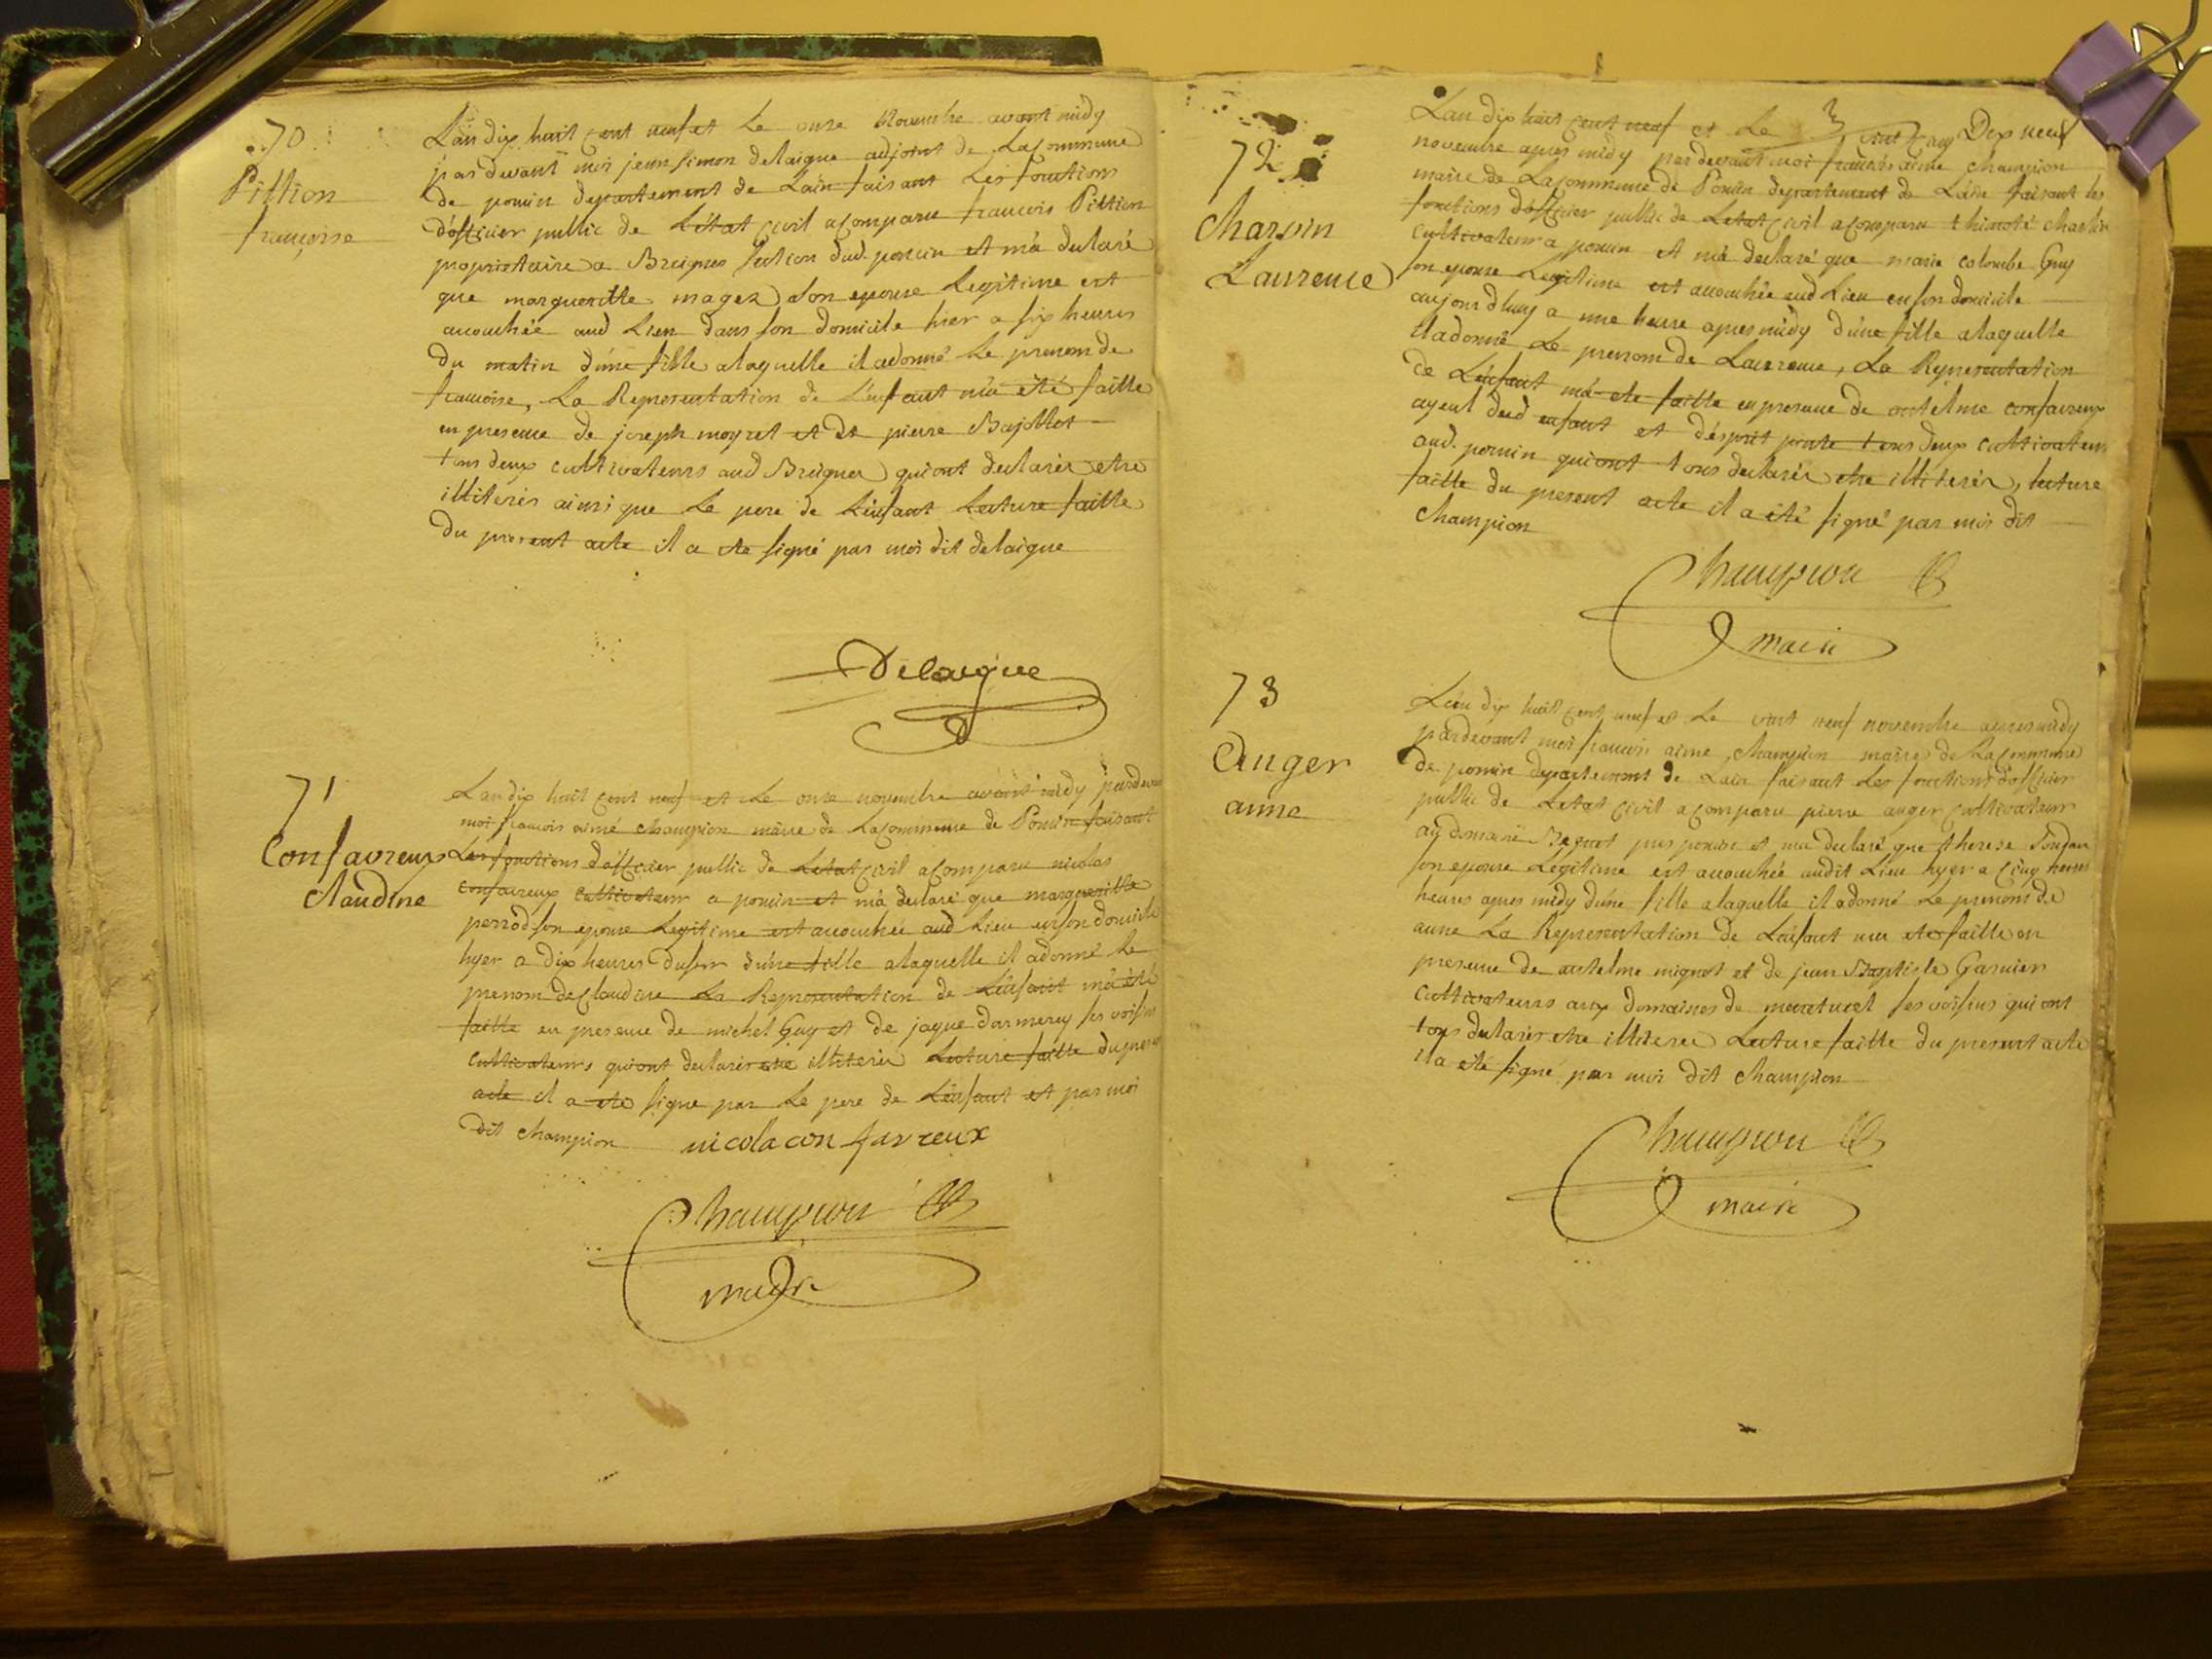 70
Pittion
francoise
L'an dix huit cent neuf et Le onze Novembre avant midy
par devant moi jean simon delaigue adjoint de La commune
de poncin departement de Lain faisant Les fonctions
d'officier public de L'état civil a comparu francois Pittion
proprietaire a Breignes section dud. poncin et m'a declaré
que margueritte magez son epouse Legitime est
accouchée aud Lieu dans son domicile hier a six heures
du matin d'une fille a laquelle il a donné Le prenom de
francoise, La Representation de L'enfant m'a été faitte
en presence de joseph moyret et de pierre Bajollet
tous deux cultivateurs aud Breignes qui ont declarés etre
illiterés ainsi que Le pere de L'enfant Lecture faitte
du present acte il a ete signé par moi dit delaigue
Delaigue
71
Confavreux
claudine
L'an dix huit cent neuf et Le onze novembre avant midy pardevant
moi francois aimé champion maire de La commune de Poncin faisant
Les fonctions d'officier public de L'etat civil a comparu nicolas
confavreux cultivateur a poncin et m'a declaré que margueritte
perrod son epouse Legitime est accouchée aud Lieu en son domicile
hyer a dix heures du soir d'une fille a laquelle il a donné Le
prenom de claudine La Representation de L'enfant m'a été
faitte en presence de michel Guy et de jaque darmerey ses voisins
cultivateurs qui ont declarés etre illiterés Lecture faitte du present
acte il a ete signé par Le pere de L'enfant et par moi
dit champion nicola con favreux
Champion
maire
72
charvin
Laurence
L'an dix huit cent neuf et Le vint cinq Dix neuf
novembre apres midy par devant moi francois aimé champion
maire de La commune de Poncin departement de L'ain faisant les
fonctions d'officier public de L'etat civil a comparu thimoté charvin
cultivateur a poncin et m'a declaré que marie colombe Guy
son epouse Legitime est accouchée aud Lieu en son domicile
aujourd'huy a une heure apres midy d'une fille a laquelle
il a donné Le prenom de Laurence, La Representation
de L'enfant m'a ete faitte en presence de antelme confavreux
ayeul dud enfant et d'esprit tous deux cultivateurs
aud. poncin qui ont tous declarés etre illiterés, lecture
faitte du present acte il a été signé par moi dit
champion
Champion
maire
73
Auger
anne
L'an dix huit cent neuf et Le vint neuf novembre apres midy
pardevant moi francois aimé champion maire de La commune
de poncin departement de L'ain faisant Les fonctions d'officier
public de L'etat civil a comparu pierre auger cultivateur
au domaine pres poncin et m'a declaré que therese
son epouse Legitime est accouchée audit Lieu hyer a cinq heures
heures apres midy d'une fille a laquelle il a donné Le prenom de
anne La Representation de L'enfant m'a ete faitte en
presence de antelme mignot et de jean Baptiste Garnier
cultivateurs aux domaines de ses voisins qui ont
tous declarés etre illiterés Lecture faitte du present acte
il a été signé par moi dit champion
Champion
maire